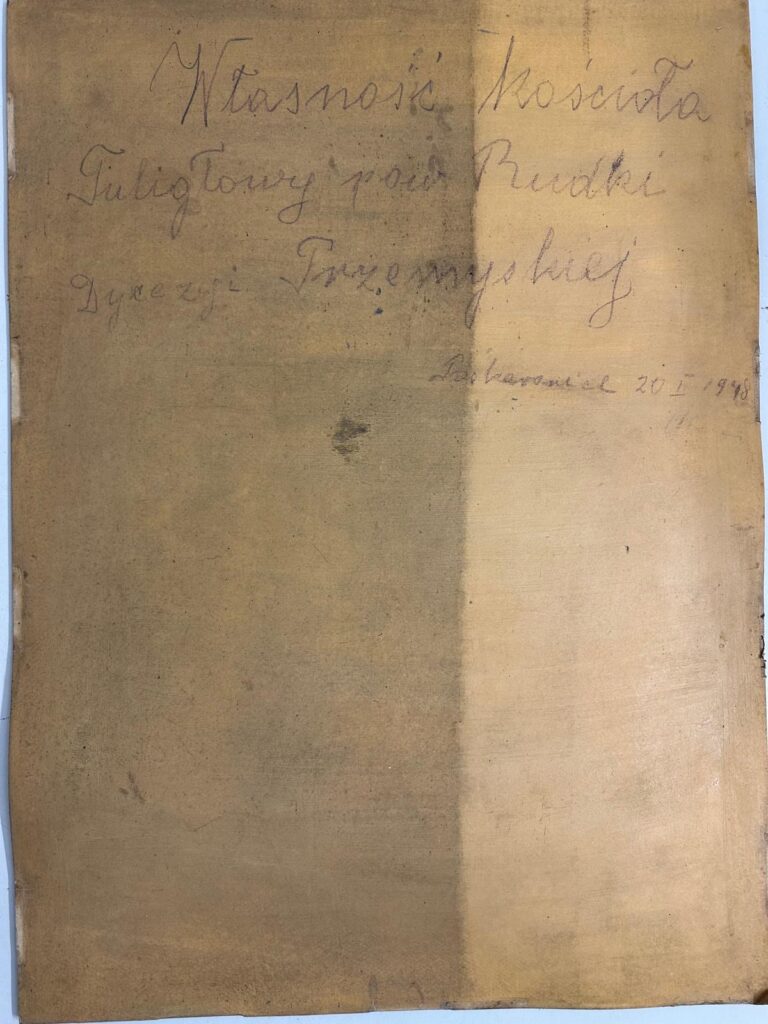 Własność kościoła
Tuligłowy pow Rudki
Dyecezyi Przemyskiej
20 I 1948